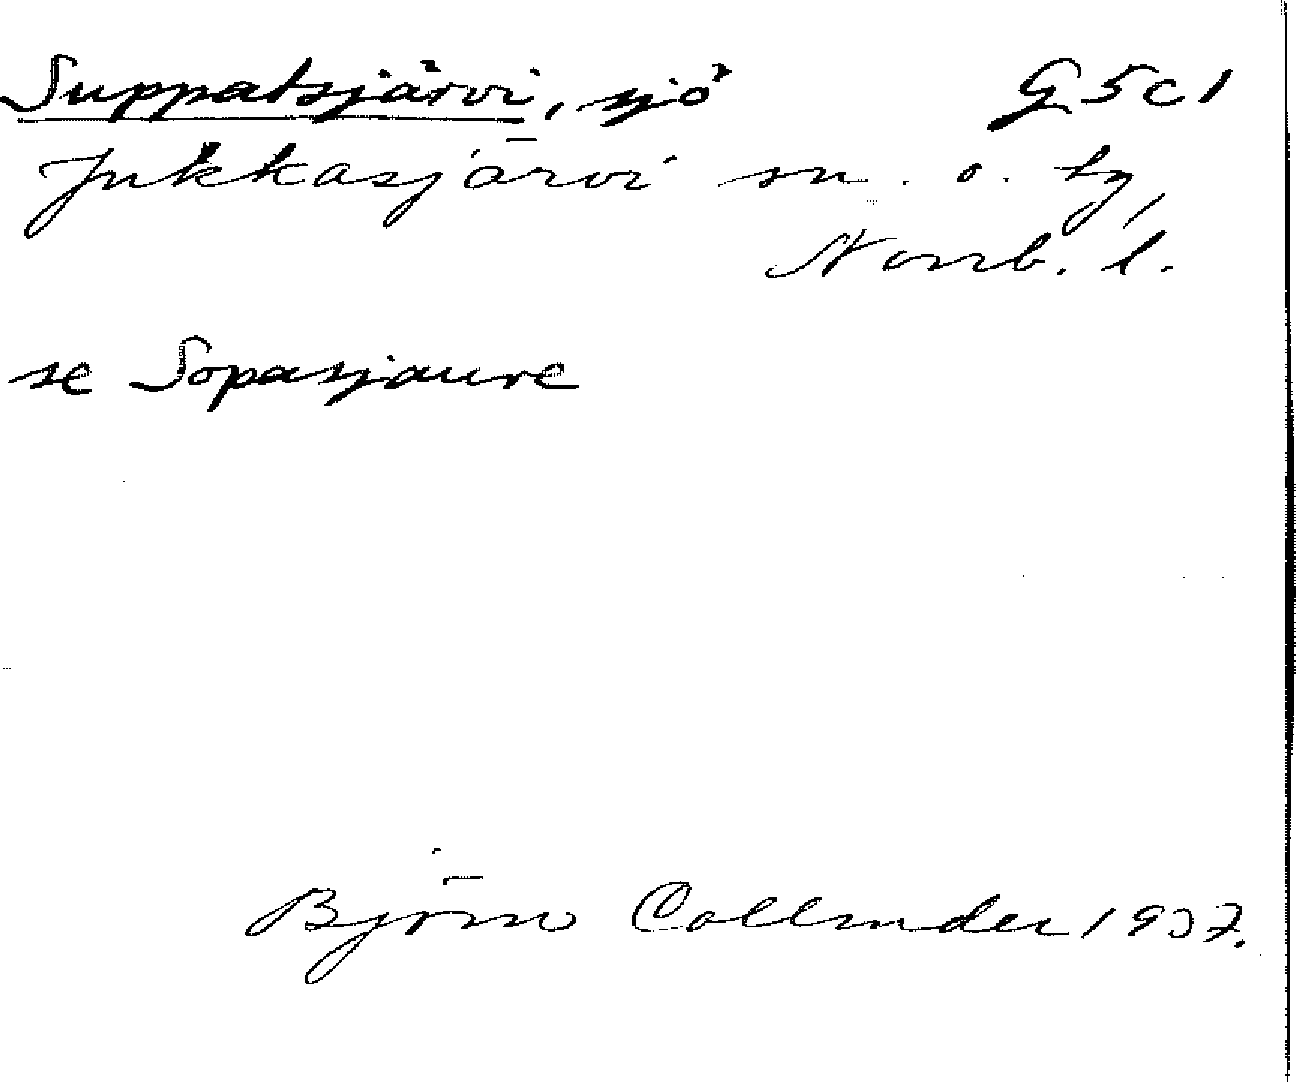 Suppatsjärvi, sjö G5c1
Jukkasjärvi sn. o. tg,
Norrb. l.
se Sopasjaure
Björn Collinder 1937.